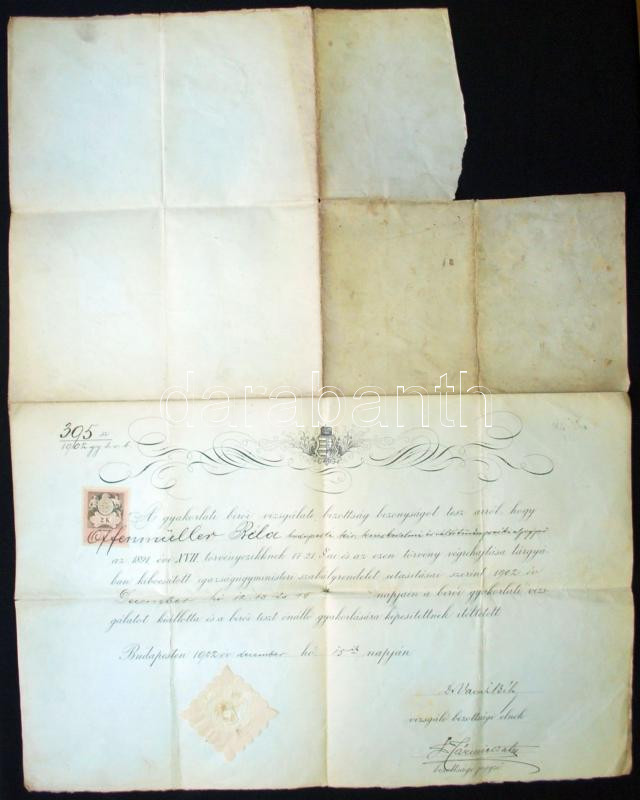 darabanth
395 sz
1902 gy. b. v. b.
2 K
A gyakorlati birói vizsgálati bizottság bizonyságot tesz arról, hogy
Offenmüller Béla budapesti kir. kereskedelmi és váltótörvényszéki aljegyző
az 1891. évi XVII. törvényczikknek 17-21. §-ai és az ezen törvény végrehajtása tárgyá-
ban kibocsátott igazságügyministeri szabályrendelet utasításai szerint 1902 év
December hó 12. 13. napjain a birói gyakorlati viz-
gálatot kiállotta és a birói tiszt önálló gyakorlására képesítettnek itéltetett.
Budapesten 1902 év december hó 15ik napján
vizsgáló bizottsági elnök
bizottsági jegyző